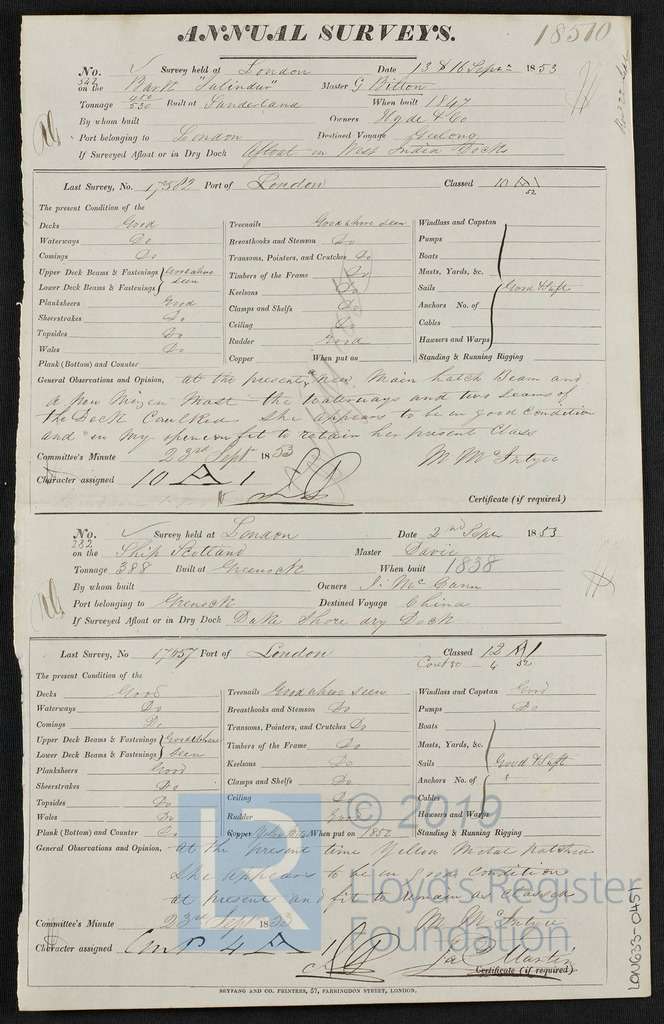 ANNUAL SURVEYS. 18510
No. 542 Survey held at London Date 13 & 16 Septr 1853
on the Bark "Salindur" Master G Bilton
Tonnage 480 530 Built at Sunderland When built 1847
By whom built Owners Hyde & Co
Port belonging to London Destined Voyage Geelong
If Surveyed Afloat or in Dry Dock Afloat in West India Docks
Last Survey, No. 17582 Port of London Classed 10 A 1
52
The present Condition of the
Decks Good
Waterways Do
Comings Do
Upper Deck Beams & Fastenings Good where
Lower Deck Beams & Fastenings seen
Planksheers Good
Sheerstrakes Do
Topsides Do
Wales Do
Plank (Bottom) and Counter
Treenails Good where seen
Breasthooks and Stemson Do
Transoms, Pointers, and Crutches Do
Timbers of the Frame Do
Keelsons Do
Clamps and Shelfs Do
Ceiling Do
Rudder Good
Copper When put on
Windlass and Capstan
Pumps
Boats
Masts, Yards, &c.
Sails Good & Suft
Anchors No. of
Cables
Hawsers and Warps
Standing & Running Rigging
General Observations and Opinion, At the present a new Main hatch Beam and
a new Mizen Mast the Waterways and two seams of
the Deck Caulked She appears to be in good Condition
and in my openion fit to retain her present Class
Committee's Minute 23rd Sept 1853 M McIntyre
Character assigned 10 A 1
Certificate (if required)
No. 282 Survey held at London Date 2nd Sepr 1853
on the Ship Scotland Master Davie
Tonnage 388 Built at Greenock When built 1838
By whom built Owners J. McCann
Port belonging to Grenock Destined Voyage China
If Surveyed Afloat or in Dry Dock Duke Shore dry Dock
Last Survey, No 17057 Port of London Classed 12 A 1
Cont 4 52
The present Condition of the
Decks Good
Waterways Do
Comings Do
Upper Deck Beams & Fastenings Good where
Lower Deck Beams & Fastenings Seen
Planksheers Good
Sheerstrakes Do
Topsides Do
Wales Do
Plank (Bottom) and Counter Do
Treenails Good where seen
Breasthooks and Stemson Do
Transoms, Pointers, and Crutches Do
Timbers of the Frame Do
Keelsons Do
Clamps and Shelfs Do
Ceiling Do
Rudder Good
Copper When put on 1852
Windlass and Capstan Good
Pumps Do
Boats
Masts, Yards, &c.
Sails Good & Suft
Anchors No. of
Cables
Hawsers and Warps
Standing & Running Rigging
General Observations and Opinion, At the present time Yellow Metal patched
She appears to be in good condition
at present and fit to remain as classed
Committee's Minute 23rd Sept 1853 M McIntyre
Character assigned Cont 4 A 1 Martin
Certificate (if required)
SEYFANG AND CO. PRINTERS, 57, FARRINGDON STREET, LONDON.
LR © 2019
Lloyd's Register
Foundation
LON633-0451